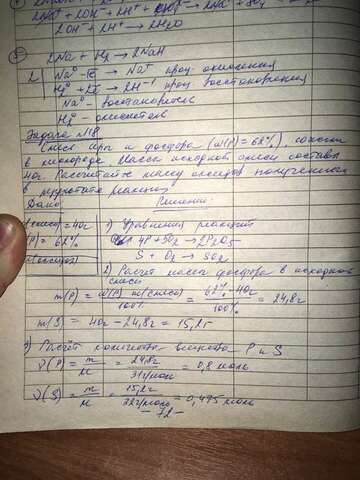 2OH⁻ + 2H⁺ → 2H₂O
2Na + H₂ → 2NaH
2 | Na⁰ - 1e → Na⁺ проц. окисления
H₂⁰ + 2e → 2H⁻¹ проц. восстановления
Na⁰ - восстановитель
H₂⁰ - окислитель
Задача №18
Смесь серы и фосфора (ω(P) = 62%), сожгли
в кислороде. Масса исходной смеси составила
40г. Рассчитайте массу оксидов полученных
в результате реакции
Дано Решение
(смеси) = 40г 1) Уравнения реакций
(P) = 62% 4P + 5O₂ → 2P₂O₅
(оксидов) S + O₂ → SO₂
2) Расчёт массы фосфора в исходной
смеси
m(P) = ω(P) · m(смеси) / 100% = 62% · 40г / 100% = 24,8г
m(S) = 40г - 24,8г = 15,2г
3) Расчёт количества вещества P и S
ν(P) = m/M = 24,8г / 31г/моль = 0,8 моль
ν(S) = m/M = 15,2г / 32г/моль = 0,475 моль
- 72 -